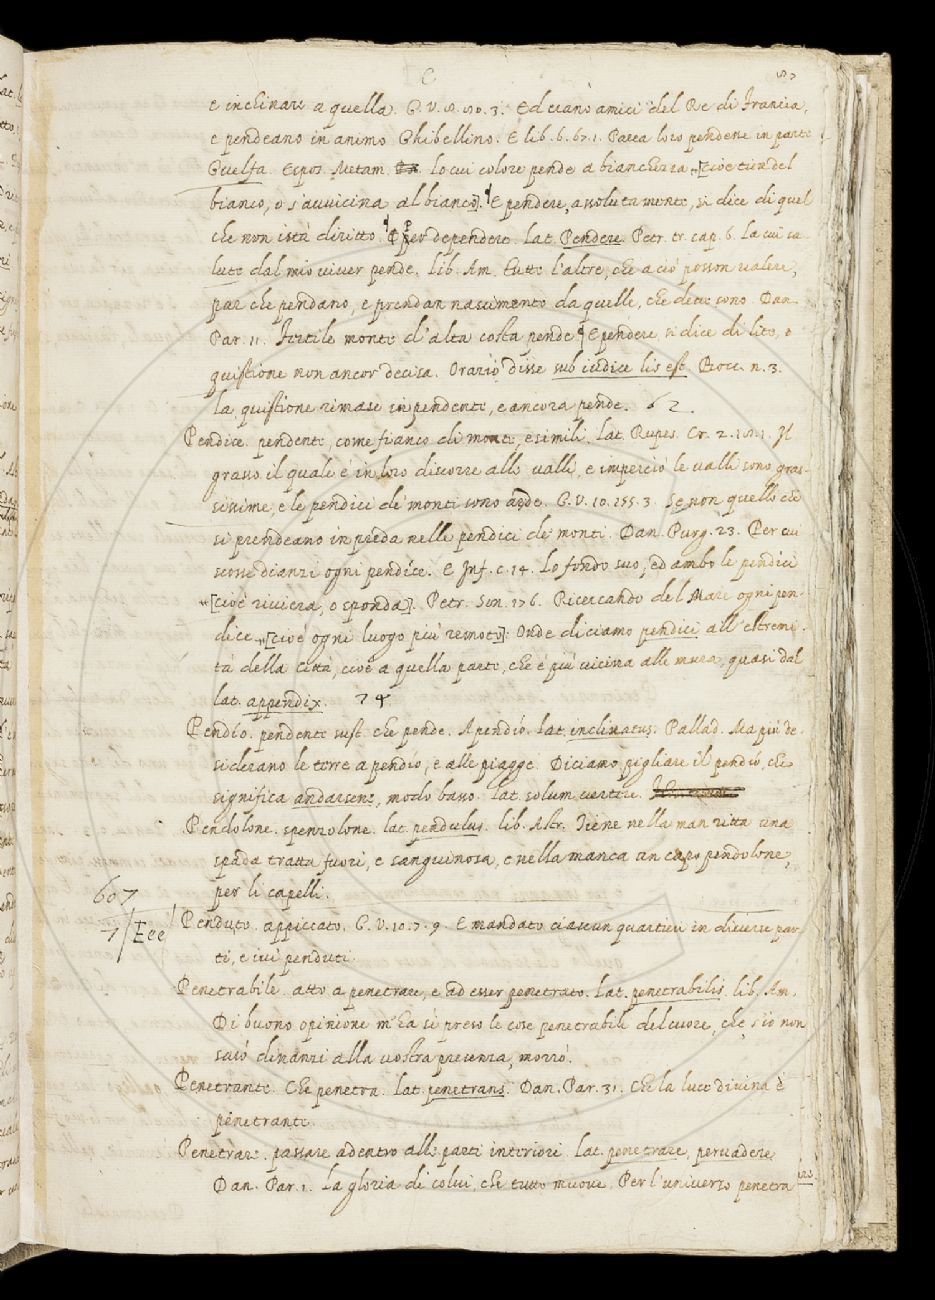 e inclinare a quella. G. V. 8. 110. 3. Ed erano amici del Re di Francia,
e pendeano in animo Ghibellino. E lib. 6. 67. 1. Parea loro pendere in parte
Guelfa. Espos. Metam. lo cui colore pende a bianchezza [cioè tira del
bianco, o s'avvicina al bianco]. E pendere, assolutamente, si dice di quel
che non istà diritto. Per dependere. Lat. Pendere. Petr. tr. cap. 6. La cui sa-
lute dal mio viver pende. lib. Am. Tutte l'altre, che a ciò posson valere,
par che pendano, e prendan nascimento da quelle, che dette sono. Dan.
Par. 11. Fertile monte d'alta costa pende. E pendere, si dice di lito, o
quistione non ancor decisa. Orazio disse sub iudice lis est. Bocc. n. 3.
La quistione rimase in pendente, e ancora pende. 62.
Pendice. pendente, come fianco di monte, e simili. Lat. Rupes. Cr. 2. Il
grasso il quale è in loro discorre alle valli, e imperciò le valli sono gras-
sissime, e le pendici de' monti sono aride. G. V. 10. 255. 3. Se non quello che
si prendeano in preda nelle pendici de' monti. Dan. Purg. 23. Per cui
scosse dianzi ogni pendice. E Inf. c. 14. Lo fondo suo, ed ambo le pendici
[cioè riviera, o sponda]. Petr. Son. 176. Ricercando del Mare ogni pen-
dice [cioè ogni luogo più remoto]: Onde diciamo pendici all'estremi-
tà della Città, cioè a quella parte, che è più vicina alle mura, quasi dal
lat. appendix. 74
Pendio. pendente sust. che pende. A pendio. Lat. inclinatus. Pallad. Ma più de-
siderano le terre a pendio, e alle piagge. Diciamo pigliare il pendio, che
significa andarsene, modo basso. Lat. solum vertere.
Pendolone. spenzolone. lat. pendulus. lib. Astr. Tiene nella man ritta una
spada tratta fuori, e sanguinosa, e nella manca un capo pendolone,
per li capelli.
607
7/Eee
Penduto. appiccato. G. V. 10. 7. 9. E mandato ciascun quartieri in diverse par-
ti, e ivi penduti.
Penetrabile. atto a penetrare, e ad esser penetrato. Lat. penetrabilis. lib. Am.
Di buono opinione m'ha sì preso le cose penetrabile del cuore, che s'io non
sarò dinanzi alla vostra presenza, morrò.
Penetrante. Che penetra. Lat. penetrans. Dan. Par. 31. Che la luce divina è
penetrante.
Penetrare. passare adentro alle parti interiori. Lat. penetrare, pervadere.
Dan. Par. 1. La gloria di colui, che tutto muove, Per l'universo penetra